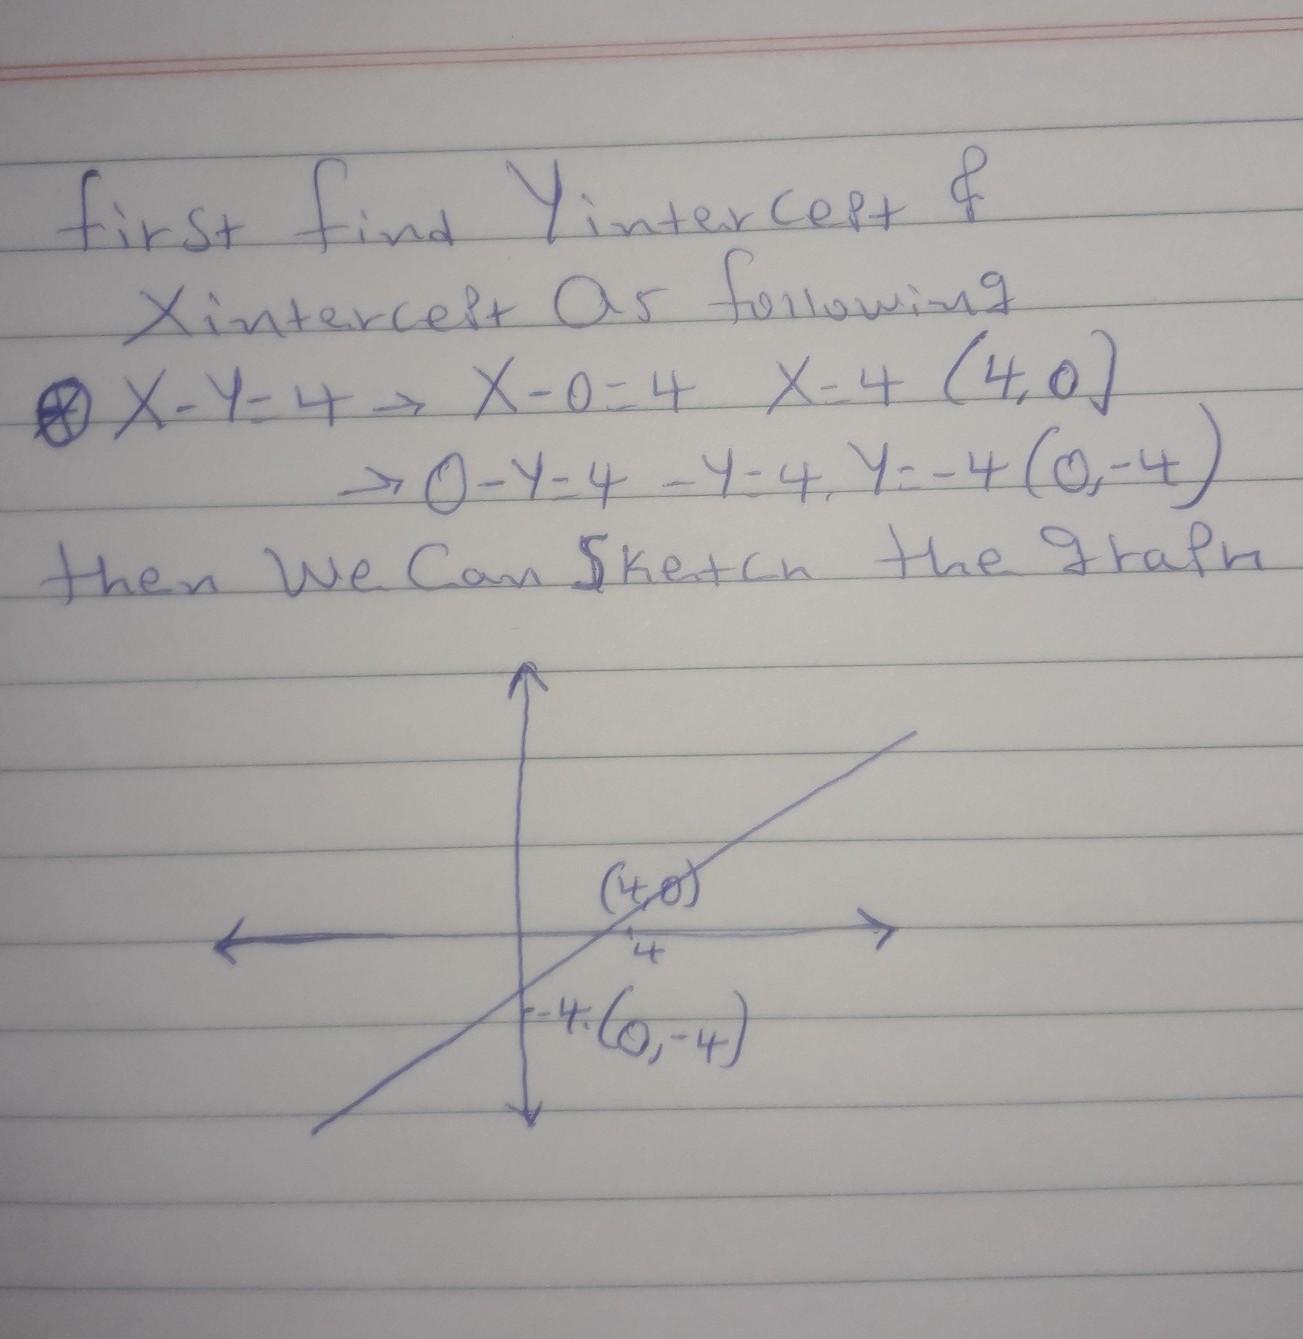 first find Yintercept &
Xintercept as following
⊛ X-Y=4 → X-0=4 X=4 (4,0)
→ 0-Y=4 -Y=4, Y=-4 (0,-4)
then We Can Sketch the graph
(4,0)
4
-4. (0,-4)